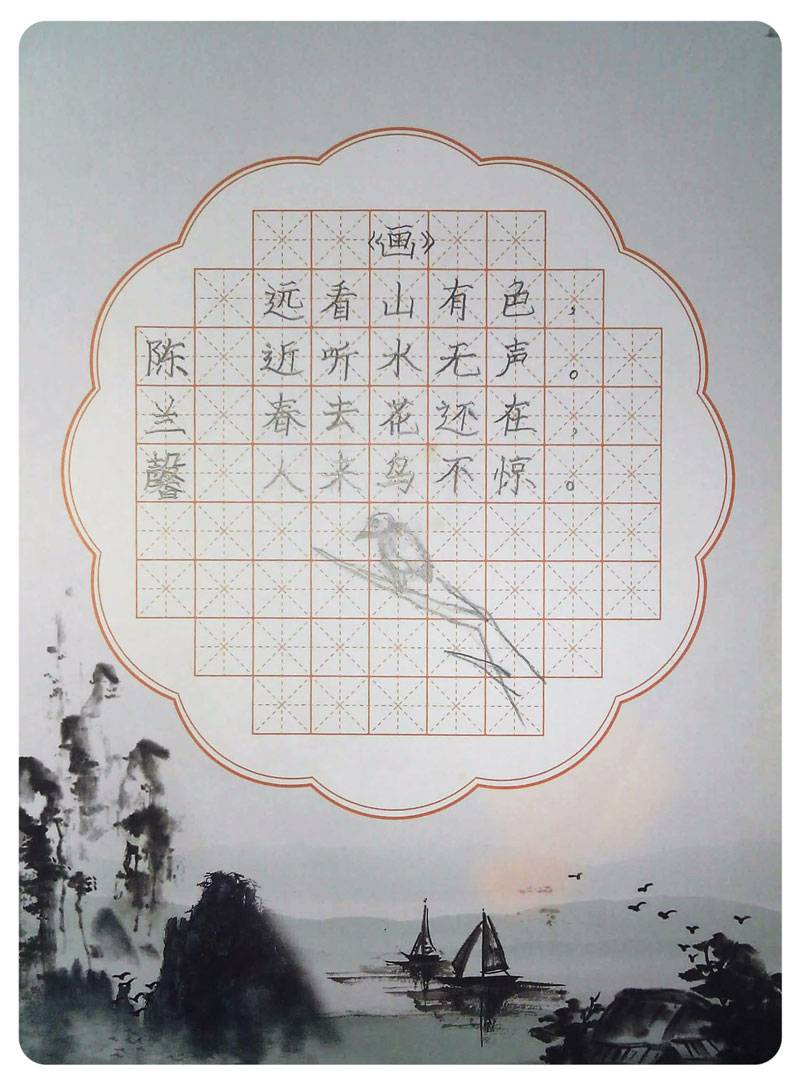 《画》
远看山有色，
近听水无声。
春去花还在，
人来鸟不惊。
陈兰馨